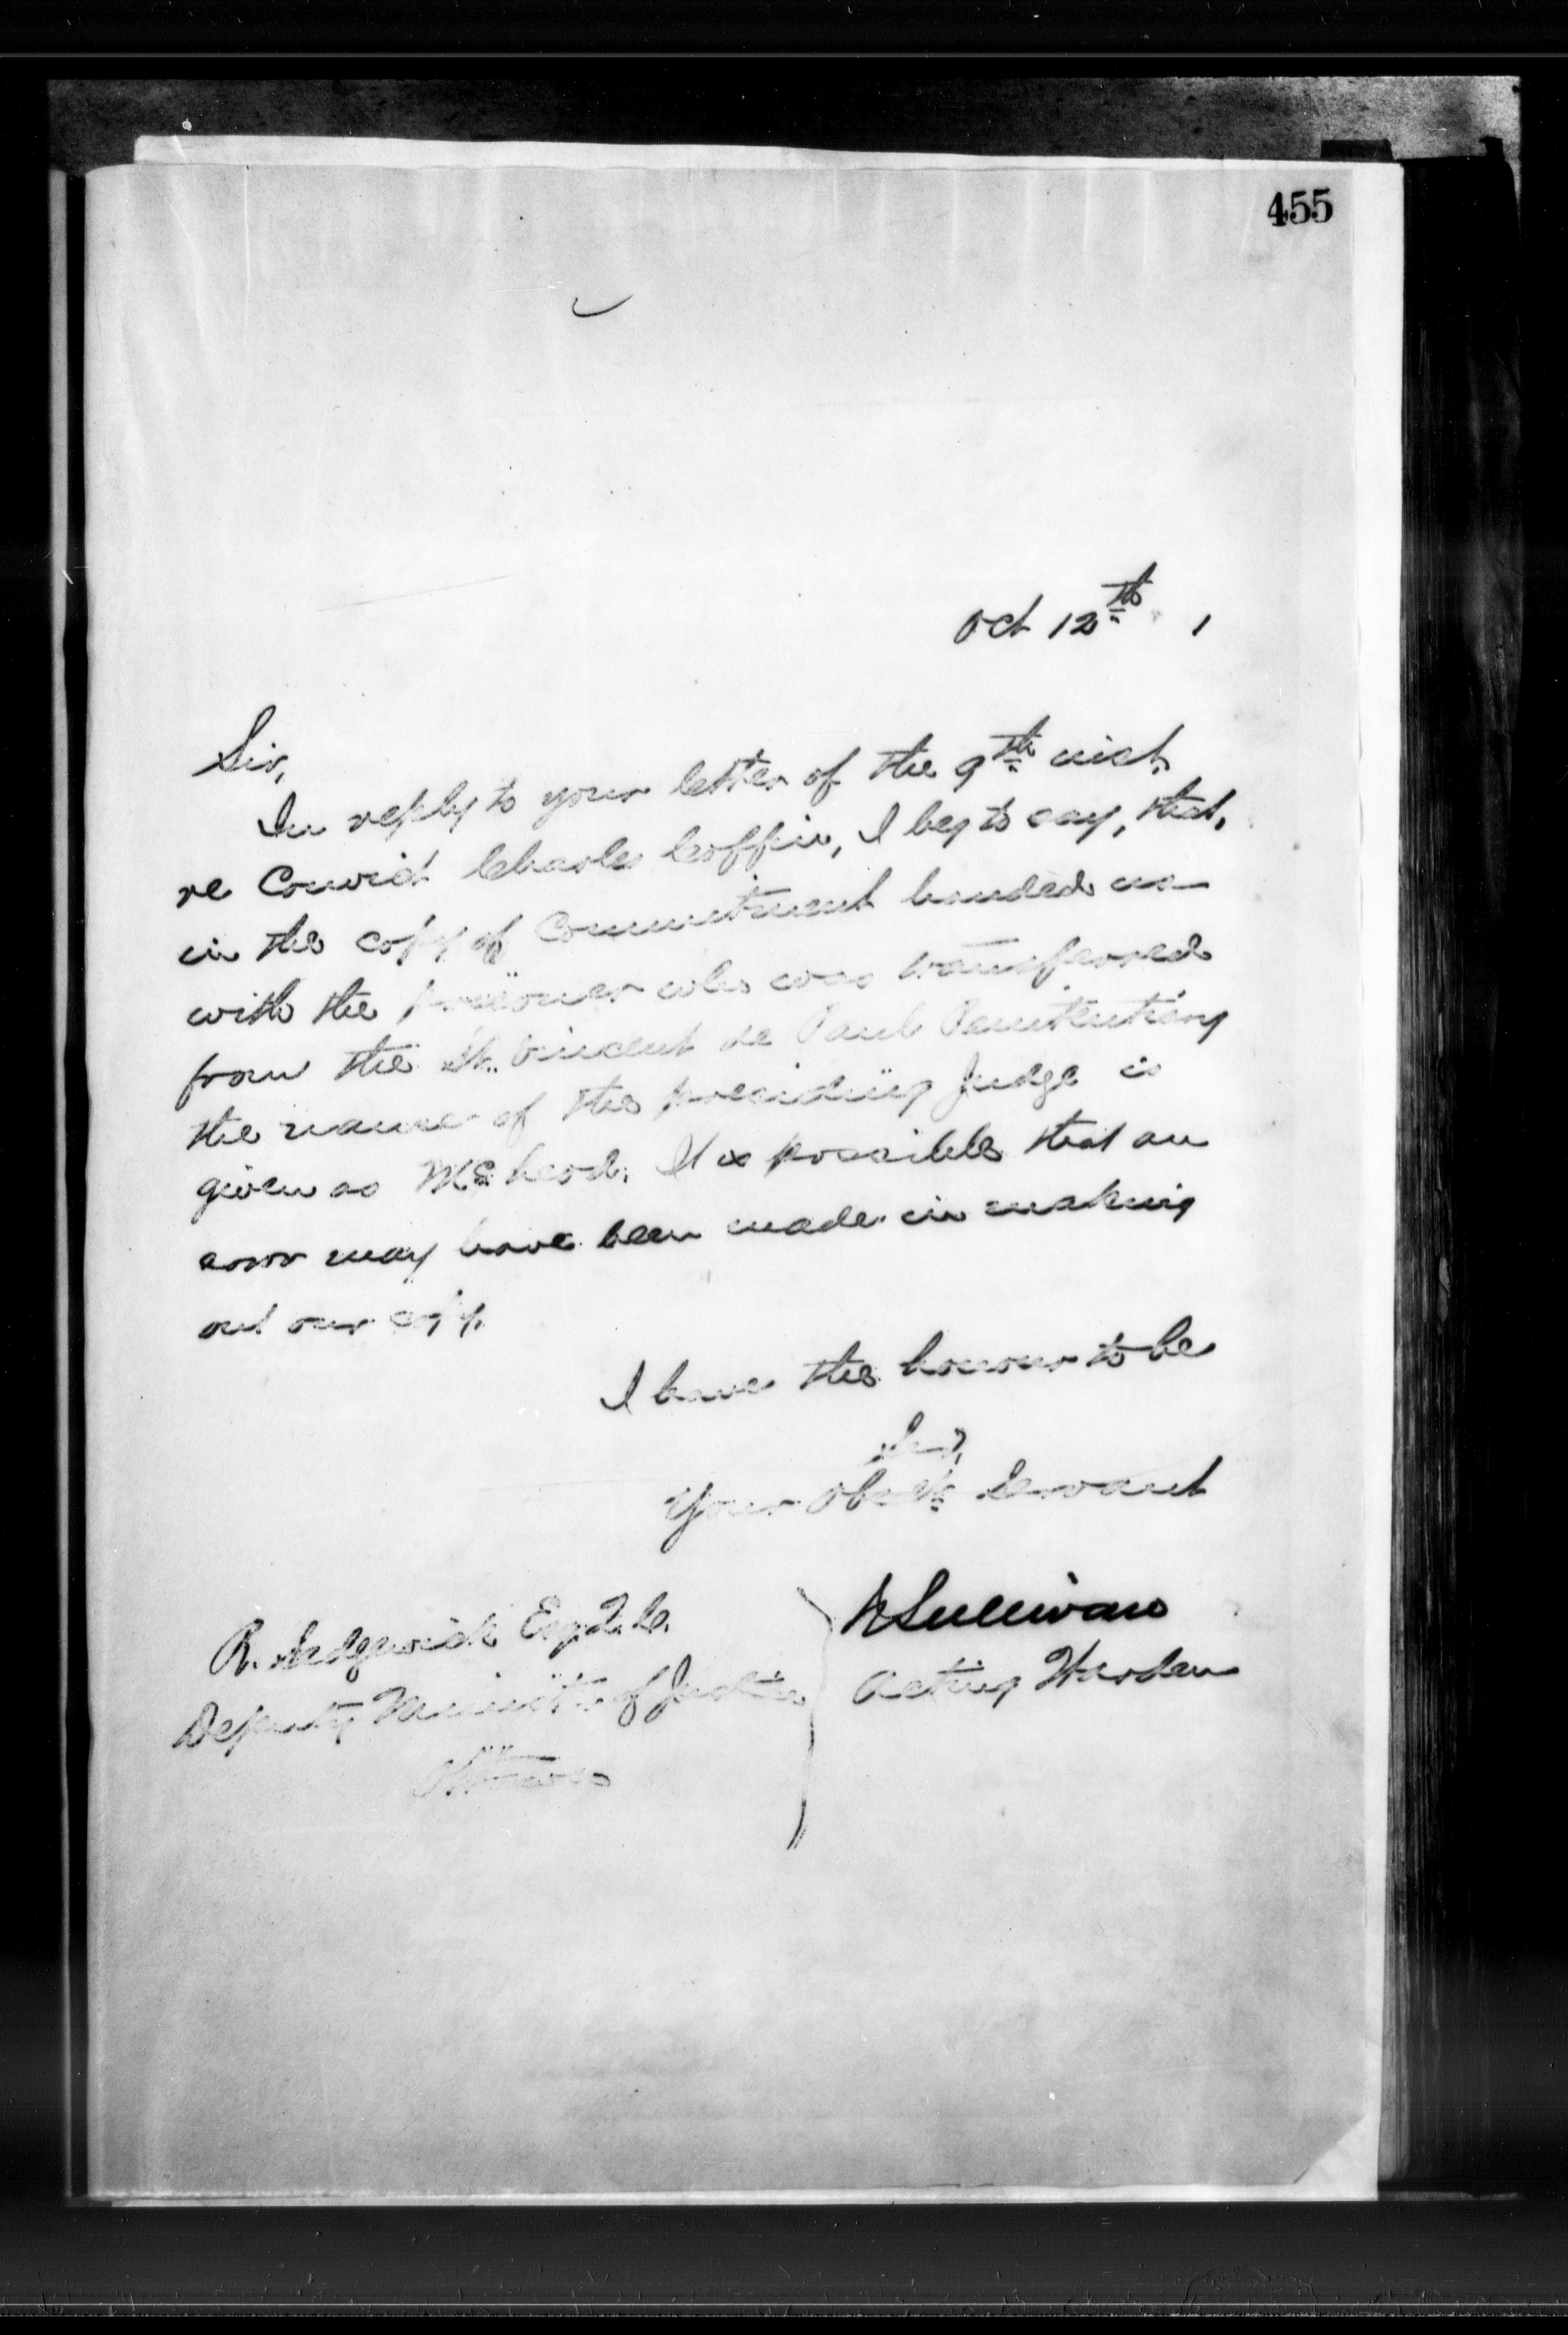 455
Oct 12th 1
Sir,
In reply to your letter of the 9th inst.
re Convict Charles Coffin, I beg to say, that,
in the copy of Commitment handed us
with the prisoner who was transferred
from the St. Vincent de Paul Penitentiary
the name of the presiding Judge is
given as McLeod. It is possible that an
error may have been made in making
out our copy.
I have the honour to be
Sir,
Your Obedt. Servant
Sullivan
Acting Warden
R. Sedgewick Esq. Q.C.
Deputy Minister of Justice
Ottawa